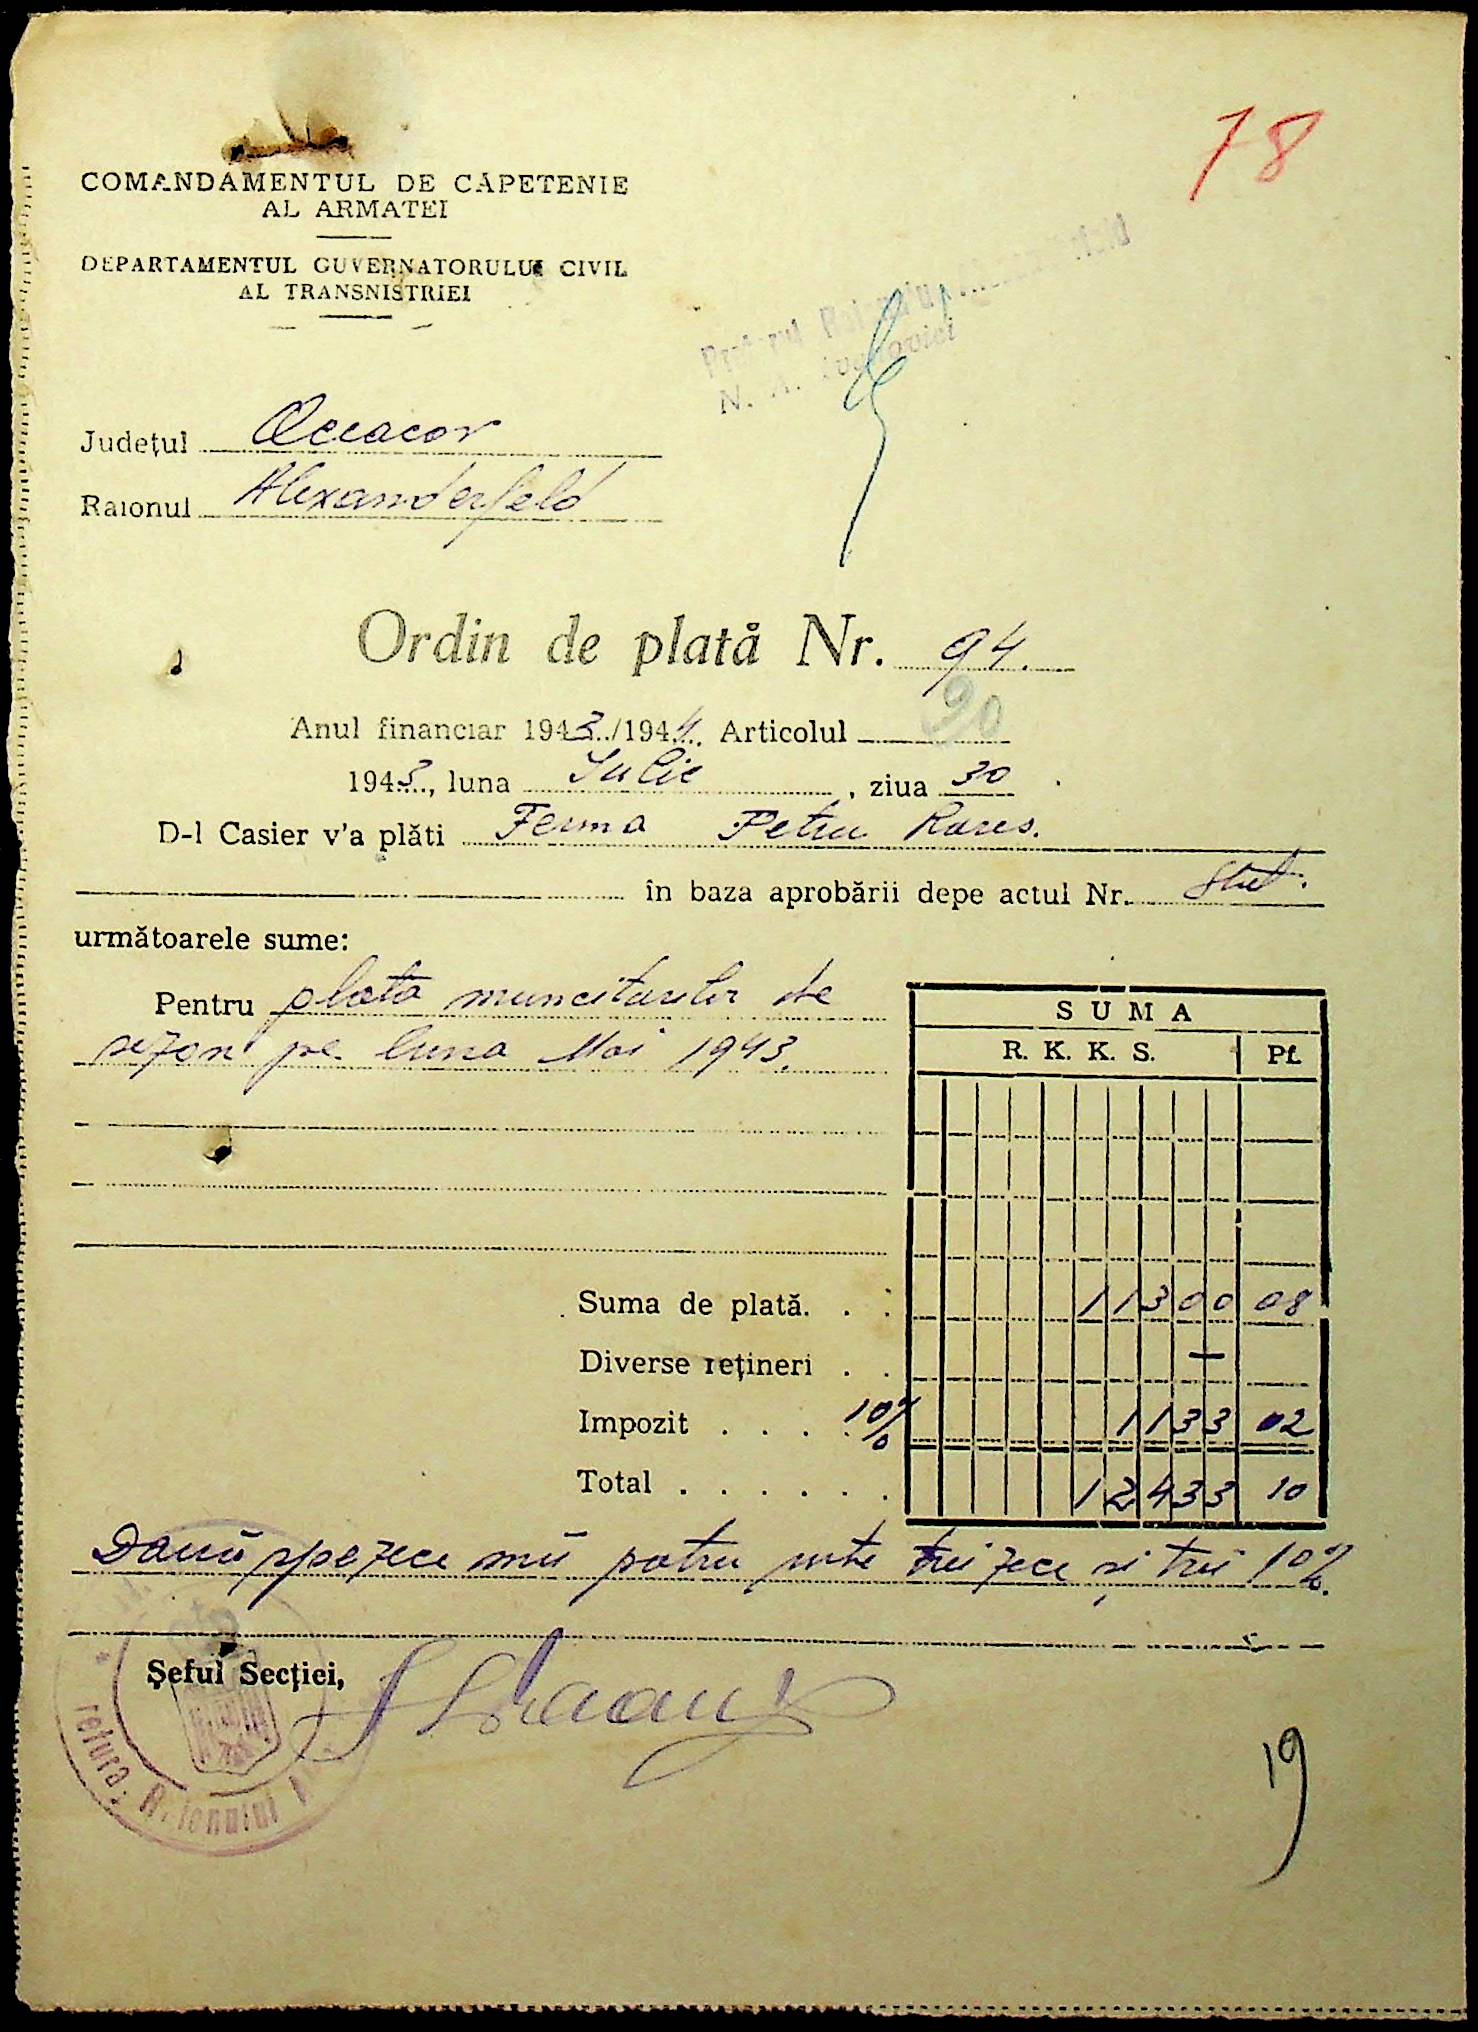 78
COMANDAMENTUL DE CĂPETENIE
AL ARMATEI
DEPARTAMENTUL GUVERNATORULUI CIVIL
AL TRANSNISTRIEI
N. A.
Județul Oceacov
Raionul Alexanderfeld
Ordin de plată Nr. 94.
Anul financiar 1943../1944... Articolul 90
1943..., luna Iulie , ziua 30
D-l Casier v'a plăti Ferma Petru Rares.
în baza aprobării depe actul Nr. Stat.
următoarele sume:
Pentru plata muncitorilor de
sezon pe luna Mai 1943.
SUMA
R. K. K. S. Pf.
Suma de plată. . . 11300 08
Diverse rețineri . . —
Impozit . . . . 10% 1133 02
Total . . . . . . 12433 10
Două spezece mii patru sute treizece si trei 10%.
Șeful Secției,
retura, Raionului
19